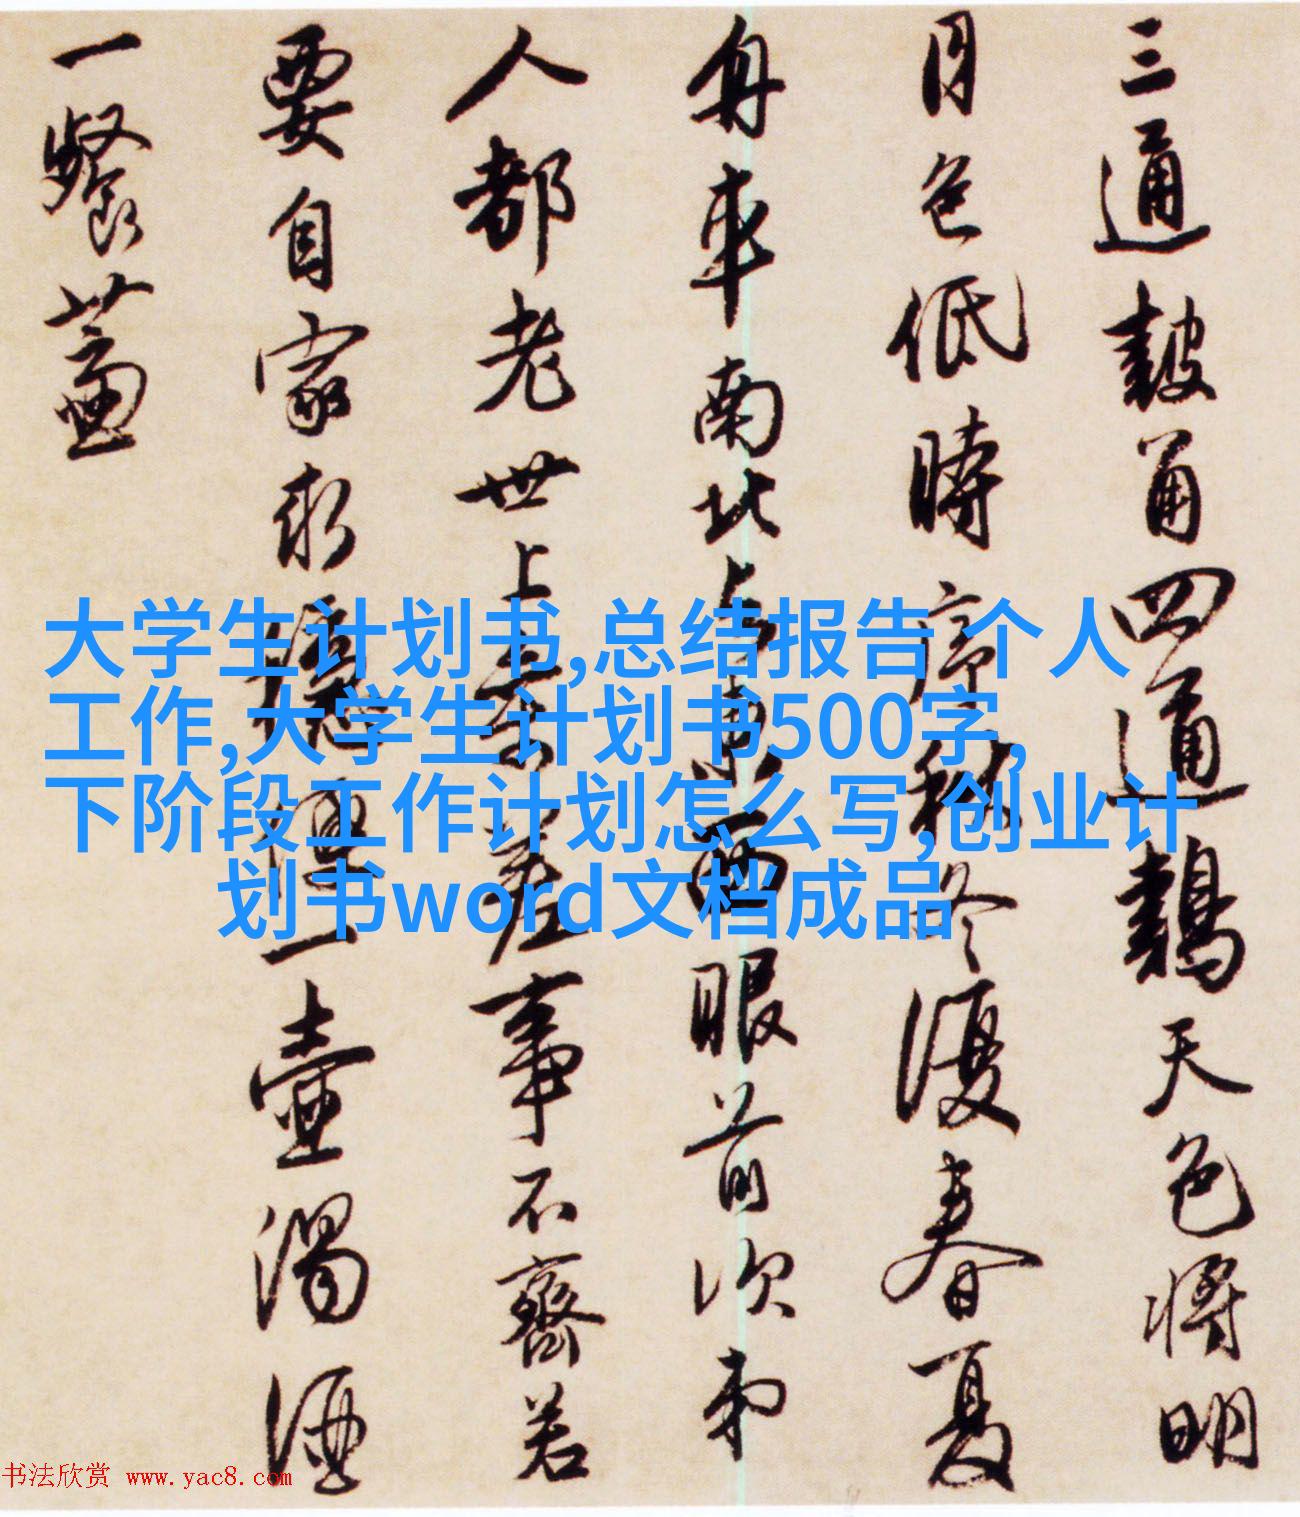 三通皷角四通鷄天色将明
月色低時序秋冬復春夏
舟車南北与東西眼前次第
人都老世上參差事不齊若
要自家求穩便一壺濁酒
一餐虀
大学生计划书,总结报告 个人
工作,大学生计划书500字,
下阶段工作计划怎么写,创业计
划书word文档成品
书法欣赏 www.yac8.com